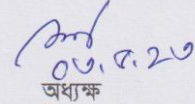 ০৩.৫.২৩
অধ্যক্ষ